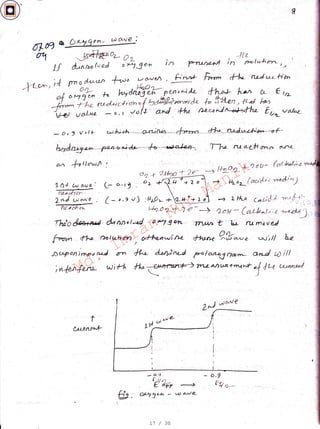 8
07.09 * Oxygen wave:
04
If dissolved oxygen is present in solution,
then, it produces two waves, First from the reduction
of oxygen to hydrogen peroxide that has a E1/2
value -0.1 volt and the second the E1/2 value
-0.9 volt which arises from the reduction of
hydrogen peroxide to water. The reactions are
as follows:
O2 + 2H2O + 2e⁻ → H2O2 + 2OH⁻ (alkaline media)
1st wave: (-0.1 O2 + 2H⁺ + 2e → H2O2 (acidic medium)
Reaction
2nd wave: (-0.9 v) H2O2 + 2H⁺ + 2e → 2H2O (acidic
Reaction H2O2 + 2e⁻ → 2OH⁻ (alkaline media)
This dissolved oxygen must be removed
from the solution, otherwise there O2 wave will be
superimposed on the desired polarogram and will
interfere with the measurement of the current
2nd wave
1st wave
↑
Current
-0.1
- 0.9
E1/2
E app →
E1/2
Fig: Oxygen - wave
17 / 30